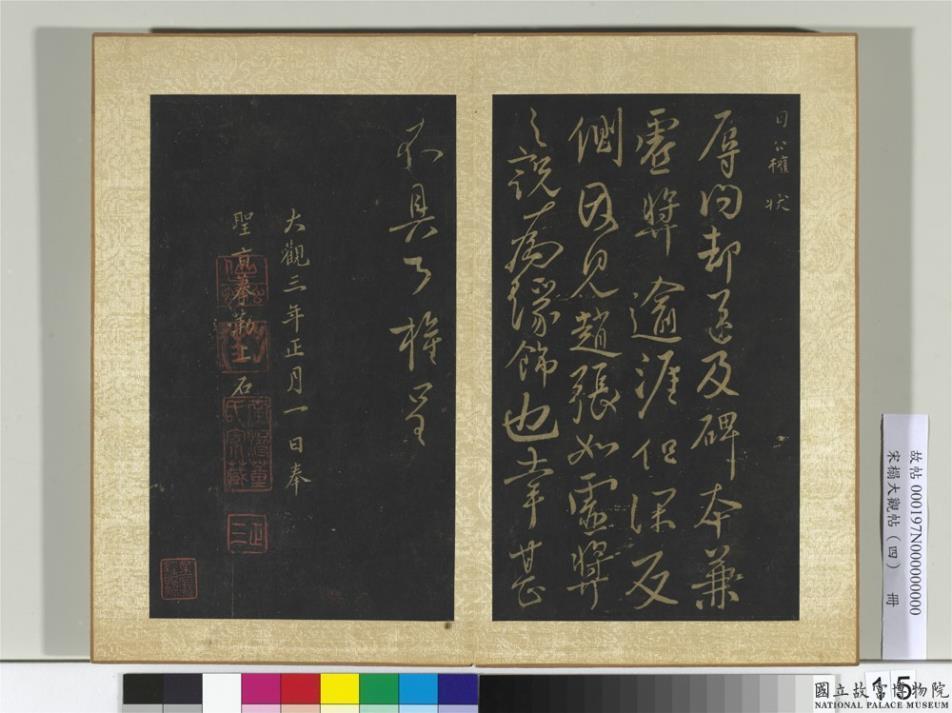 日公權狀
辱問却送及碑本兼
虛奬逾涯但深反
側因見趙張如虛奬
之說為緣飾也幸甚
不具公權呈
大觀三年正月一日奉
聖旨摹勒上石
故帖 000197N000000000
宋榻大觀帖（四） 冊
15
國立故宮博物院
NATIONAL PALACE MUSEUM